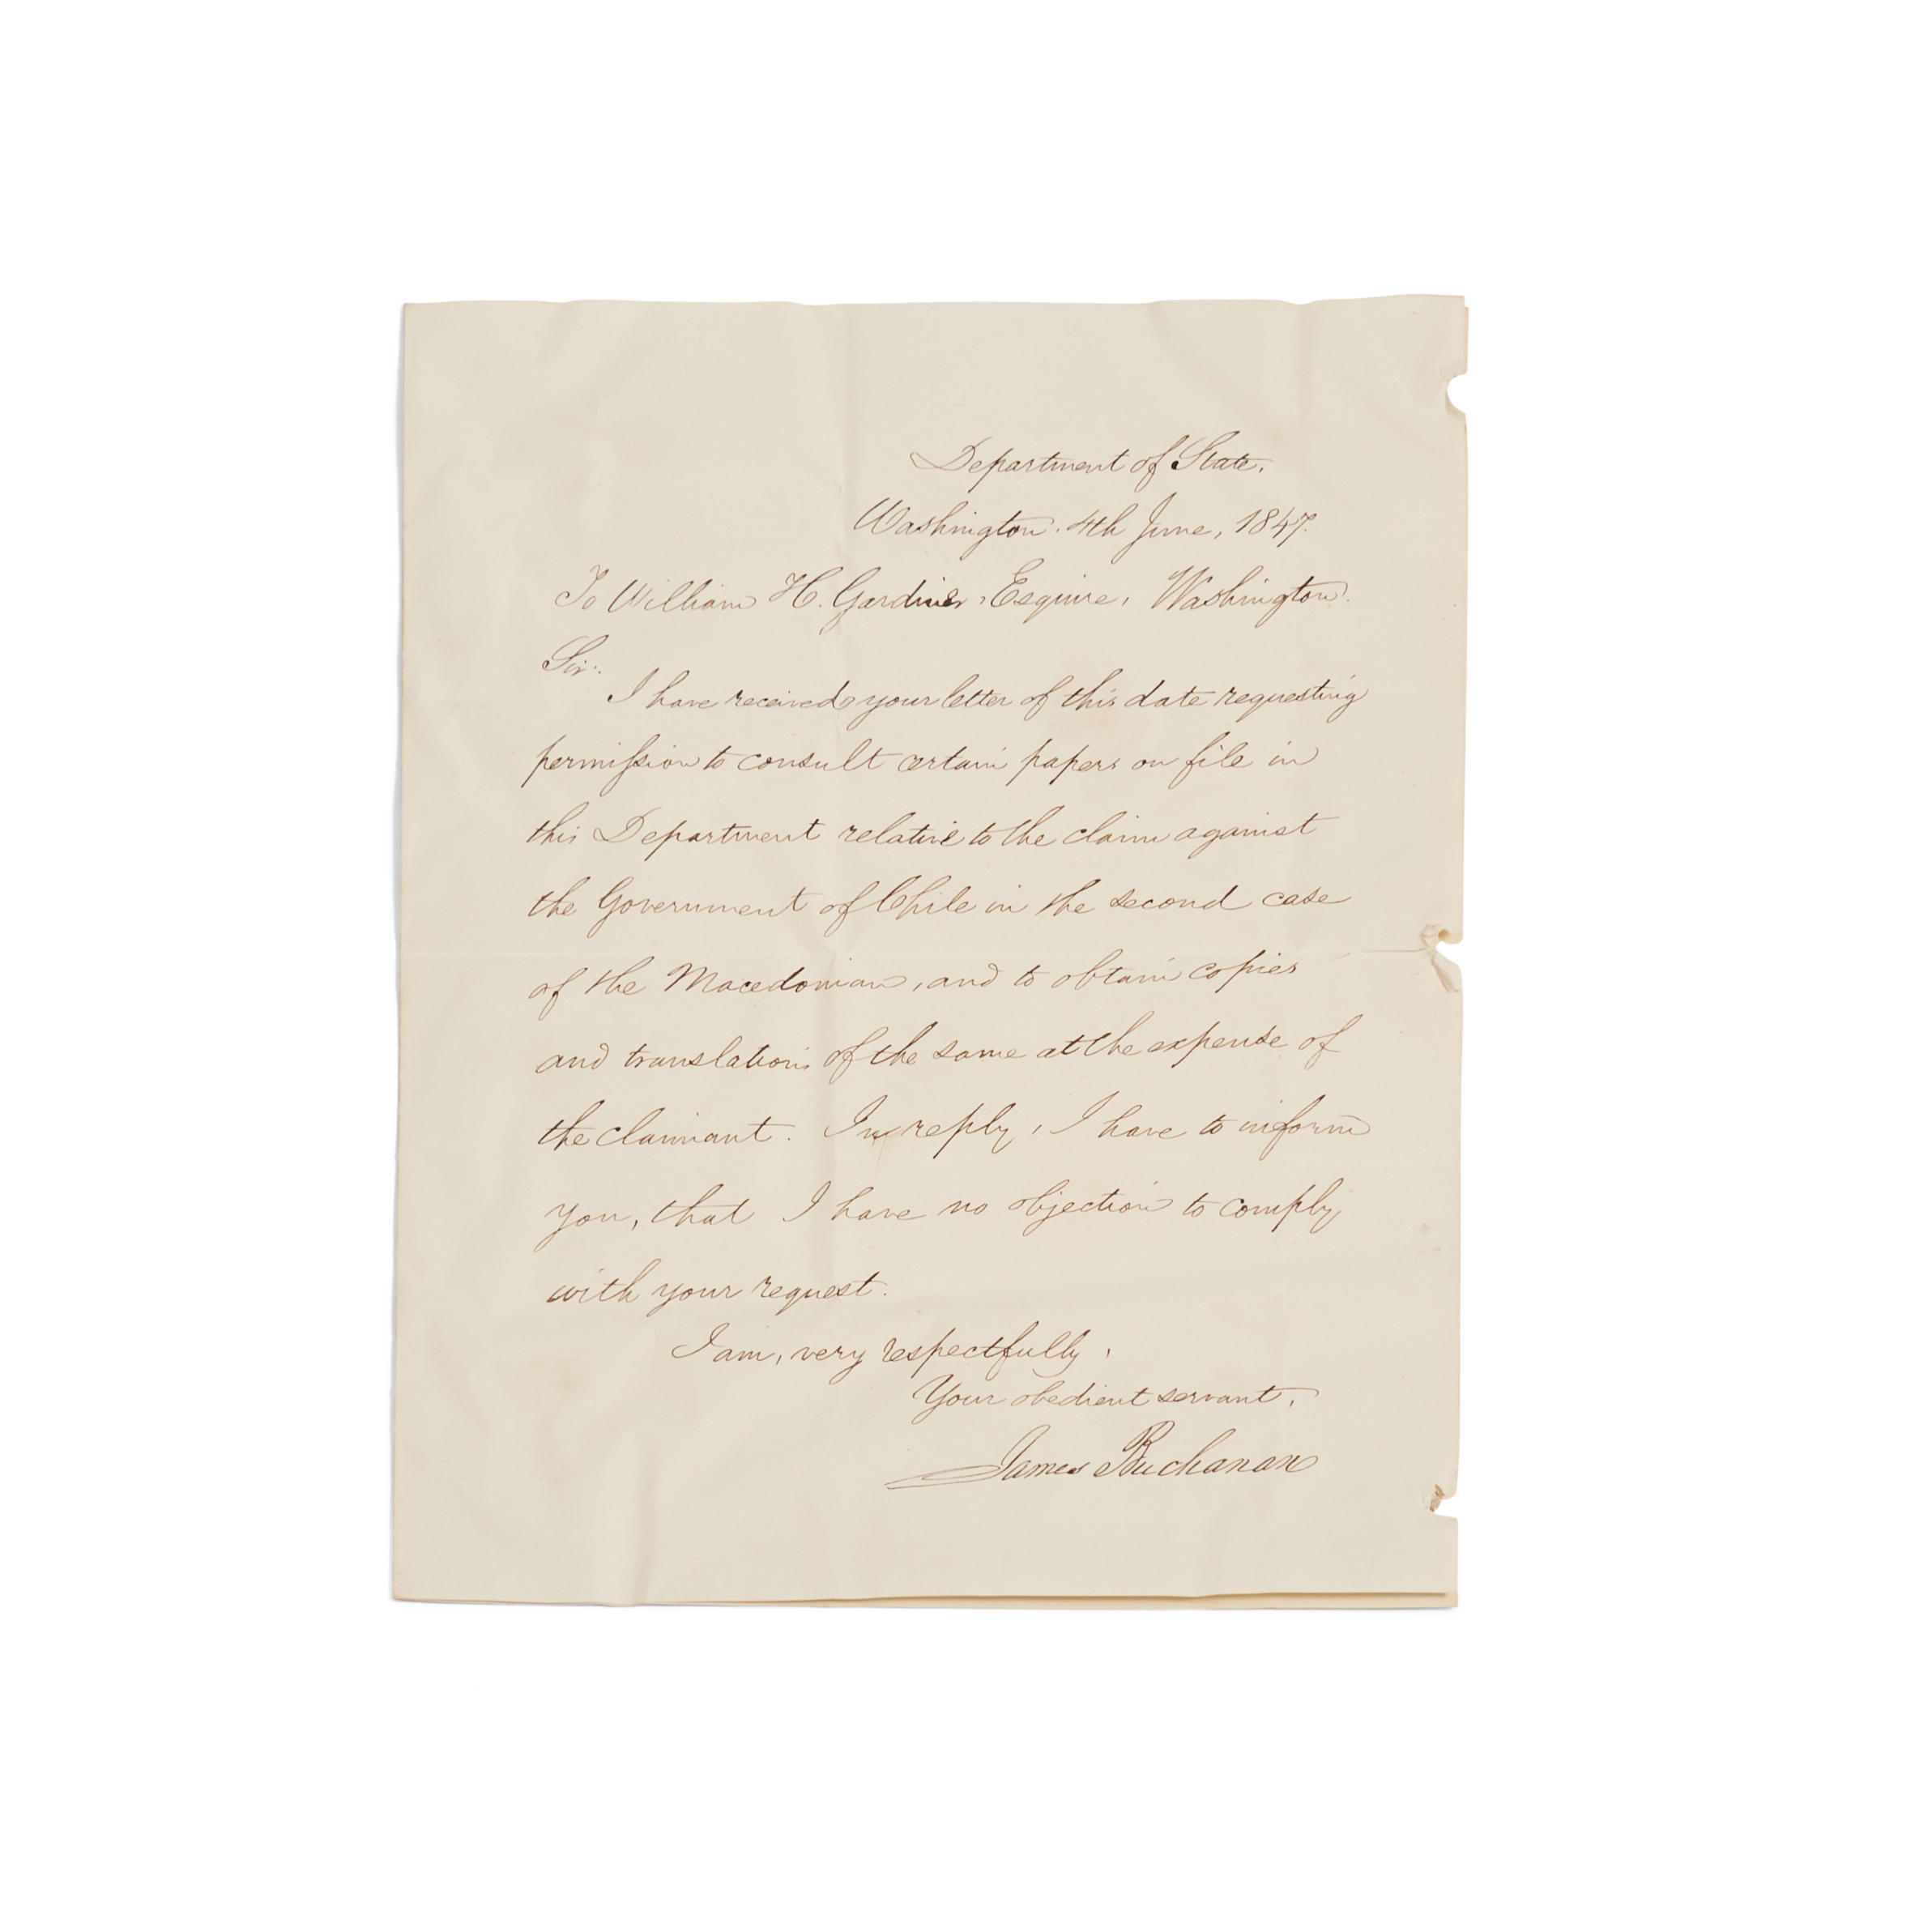 Department of State,
Washington. 4th June, 1847.
To William H. Gardiner, Esquire, Washington.
Sir:
I have received your letter of this date requesting
permiſsion to consult certain papers on file in
this Department relative to the claim against
the Government of Chile in the second case
of the Macedonian, and to obtain copies
and translations of the same at the expense of
the claimant. In reply, I have to inform
you, that I have no objection to comply
with your request.
I am, very respectfully,
Your obedient servant,
James Buchanan